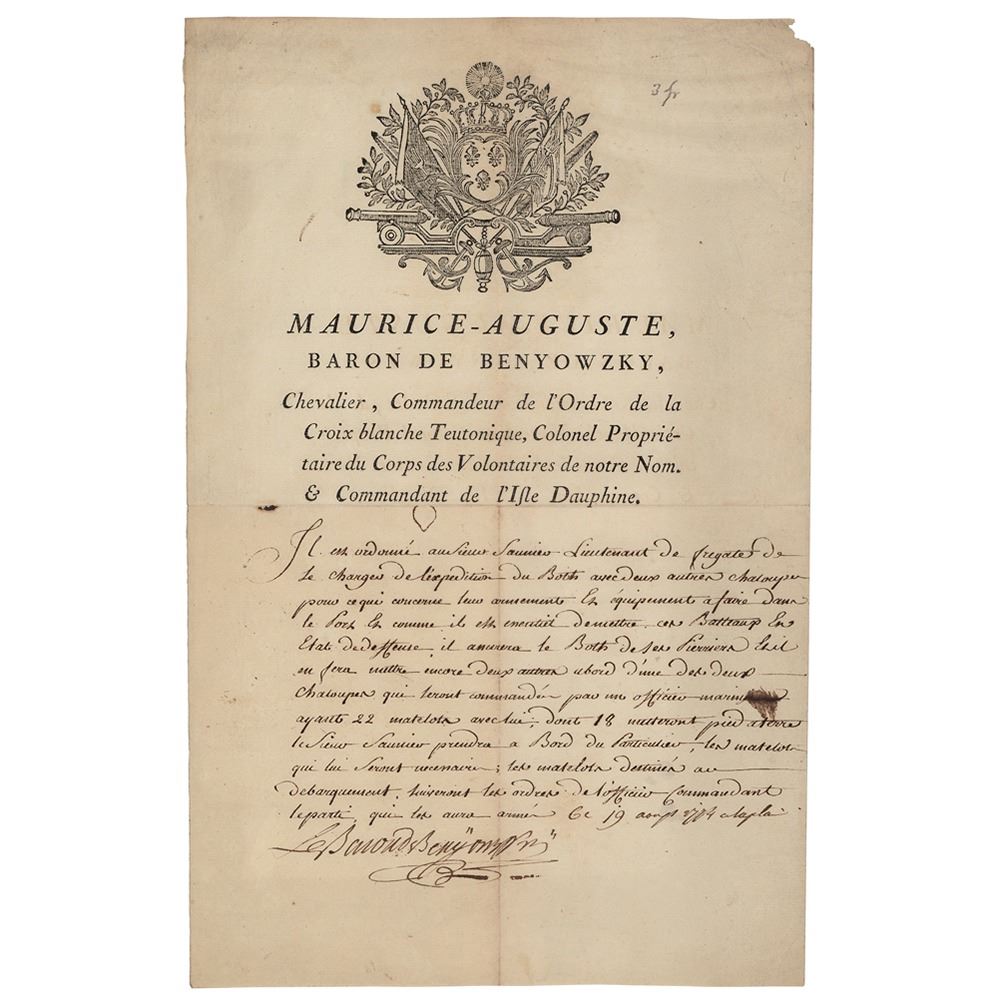 3 fr
MAURICE-AUGUSTE,
BARON DE BENYOWZKY,
Chevalier, Commandeur de l'Ordre de la
Croix blanche Teutonique, Colonel Proprié-
taire du Corps des Volontaires de notre Nom.
& Commandant de l'Isle Dauphine.
Il est ordonné au Sieur Saunier Lieutenant de fregate de
se charger de l'expedition du Both avec deux autres chaloupes
pour ce qui concerne leur armements Et équipement a faire dans
le Port Et comme il est enentiel de mettre ces Batteaux En
Etat de deffense, il armera le Both de ses Pierriers Et il
en fera mettre encore deux autres abord d'une des deux
Chaloupes qui seront commandés par un officier
ayants 22 matelots avec lui, dont 18 metteront pied a terre
le Sieur Saunier prendra a Bord du Particulier, les matelots
qui lui seront necenaire; les matelots destinés au
debarquement, suiveront les ordres de l'officier Commandant
le parti, qui les aura armé Ce 19
Le Baron de Benyowsky